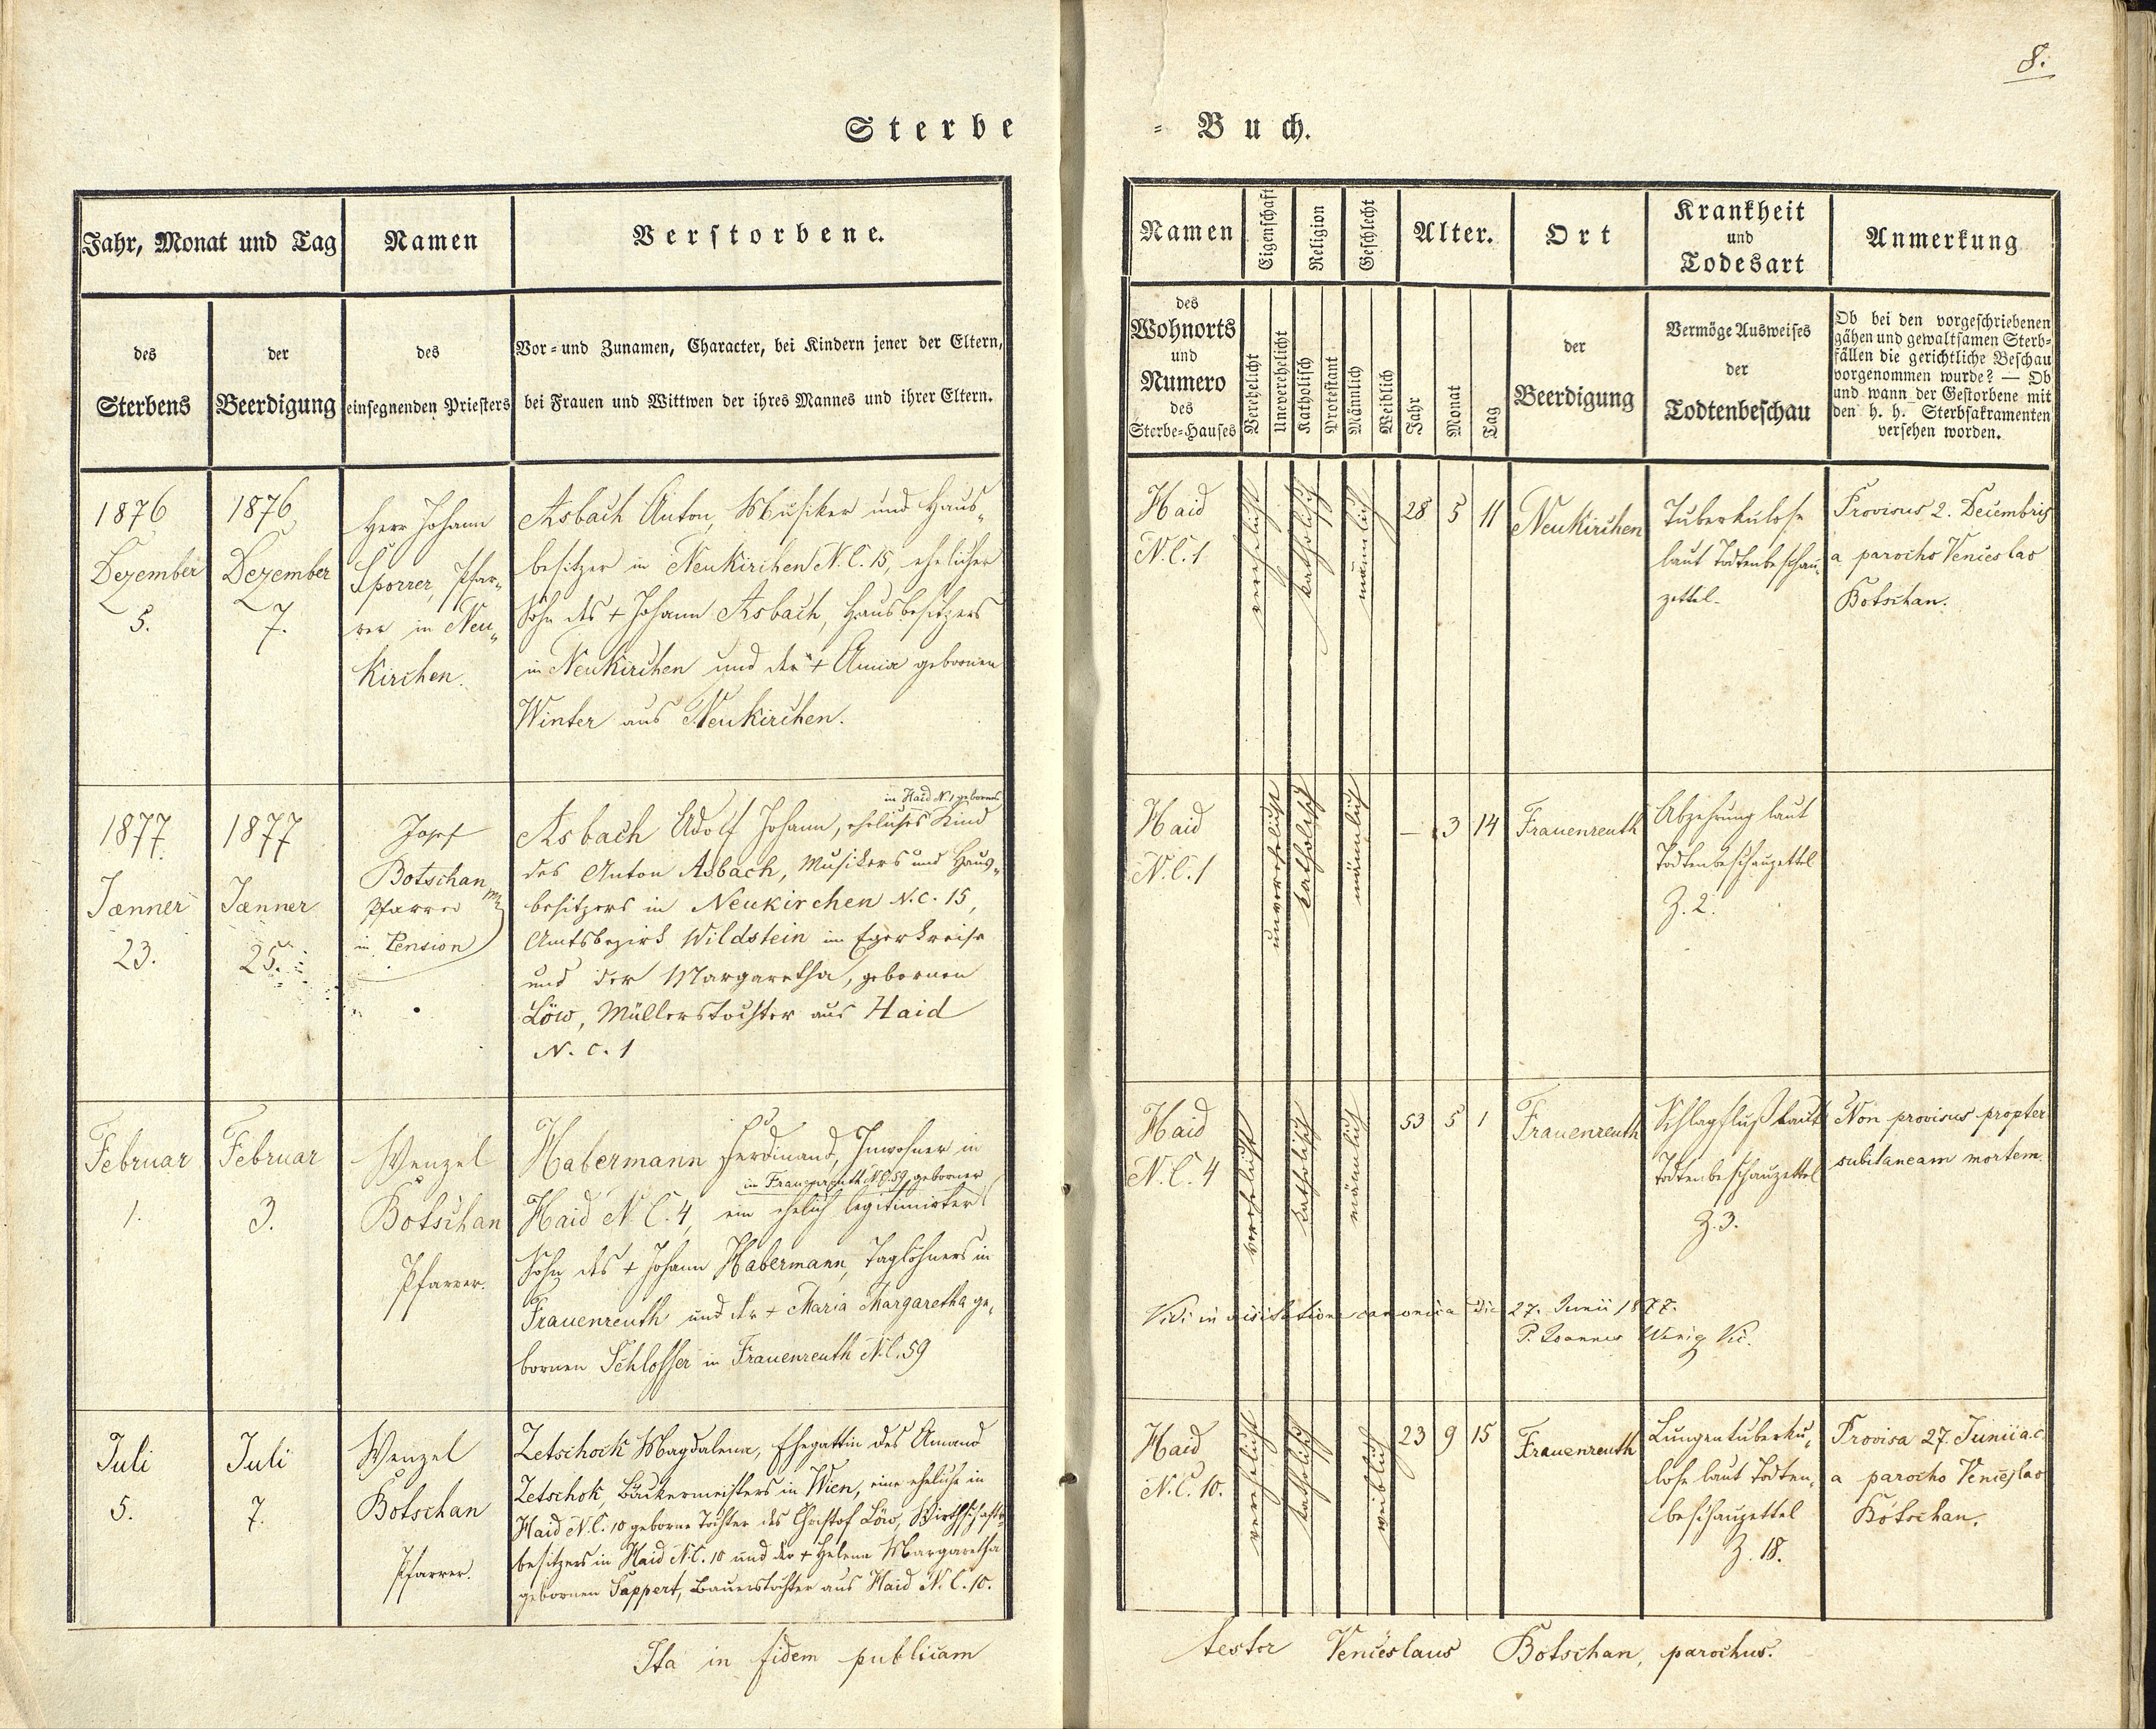 8.
Sterbe
= Buch.
Jahr, Monat und Tag
Namen
Verstorbene.
des
Sterbens
der
Beerdigung
des
einsegnenden Priesters
Vor= und Zunamen, Character, bei Kindern jener der Eltern,
bei Frauen und Wittwen der ihres Mannes und ihrer Eltern.
Namen
Eigenschaft
Religion
Geschlecht
Alter.
Ort
Krankheit
und
Todesart
Anmerkung
des
Wohnorts
und
Numero
des
Sterbe=Hauses
Verehelicht
Unverehelicht
Katholisch
Protestant
Männlich
Weiblich
Jahr
Monat
Tag
der
Beerdigung
Vermöge Ausweises
der
Todtenbeschau
Ob bei den vorgeschriebenen
gähen und gewaltsamen Sterb=
fällen die gerichtliche Beschau
vorgenommen wurde? — Ob
und wann der Gestorbene mit
den h. h. Sterbsakramenten
versehen worden.
1876
Dezember
5.
1876
Dezember
7.
Herr Johann
Sporrer, Pfar„
rer in Neu„
kirchen.
Asbach Anton, Musiker und Haus„
besitzer in Neukirchen N.C. 15, ehelicher
Sohn des + Johann Asbach, Hausbesitzers
in Neukirchen und der + Anna gebornen
Winter aus Neukirchen.
Haid
N.C. 1
verehelicht
katholisch
männlich
28 5 11
Neukirchen
Tuberkulose
laut Todtenbeschau„
zettel.
Provisus 2. Decembris
a parocho Venceslao
Botschan.
1877
Jænner
23.
1877
Jænner
25.
Josef
Botschan
Pfarrer
in Pension
in Haid N. 1 gebornes
Asbach Adolf Johann, eheliches Kind
des Anton Asbach, Musikers und Haus„
besitzers in Neukirchen N.C. 15,
Amtsbezirk Wildstein im Egerkreise
und der Margaretha, gebornen
Löw, Müllerstochter aus Haid
N.C. 1
Haid
N.C. 1
unverehelicht
katholisch
männlich
— 3 14
Frauenreuth
Abzehrung laut
Todtenbeschauzettel
Z. 2.
Februar
1.
Februar
3.
Wenzel
Botschan
Pfarrer.
Habermann Ferdinand, Inwohner in
in Frauenreuth N.C. 59 geborner
Haid N.C. 4, ein ehelich legitimirter
Sohn des + Johann Habermann, Taglöhners in
Frauenreuth und der + Maria Margaretha ge„
bornen Schlosser in Frauenreuth N.C. 59
Haid
N.C. 4
verehelicht
katholisch
männlich
53 5 1
Frauenreuth
Schlagfluß laut
Todtenbeschauzettel
Z. 3.
Non provisus propter
subitaneam mortem.
Vidi in visitatione canonica die 27. Junii 1877.
P. Joannes Vic.
Juli
5.
Juli
7.
Wenzel
Botschan
Pfarrer.
Zetschock Magdalena, Ehegattin des Amand
Zetschok, Bäckermeisters in Wien, eine eheliche in
Haid N.C. 10 geborne Tochter des Christof Löw, Wirthschafts„
besitzers in Haid N.C. 10 und der + Helena Margaretha
gebornen Sappert, Bauerstochter aus Haid N.C. 10.
Haid
N.C. 10.
verehelicht
katholisch
weiblich
23 9 15
Frauenreuth
Lungentuberku„
lose laut Todten„
beschauzettel
Z. 18.
Provisa 27. Junii a.c.
a parocho Venceslao
Botschan.
Ita in fidem publicam
testor Venceslaus Botschan, parochus.